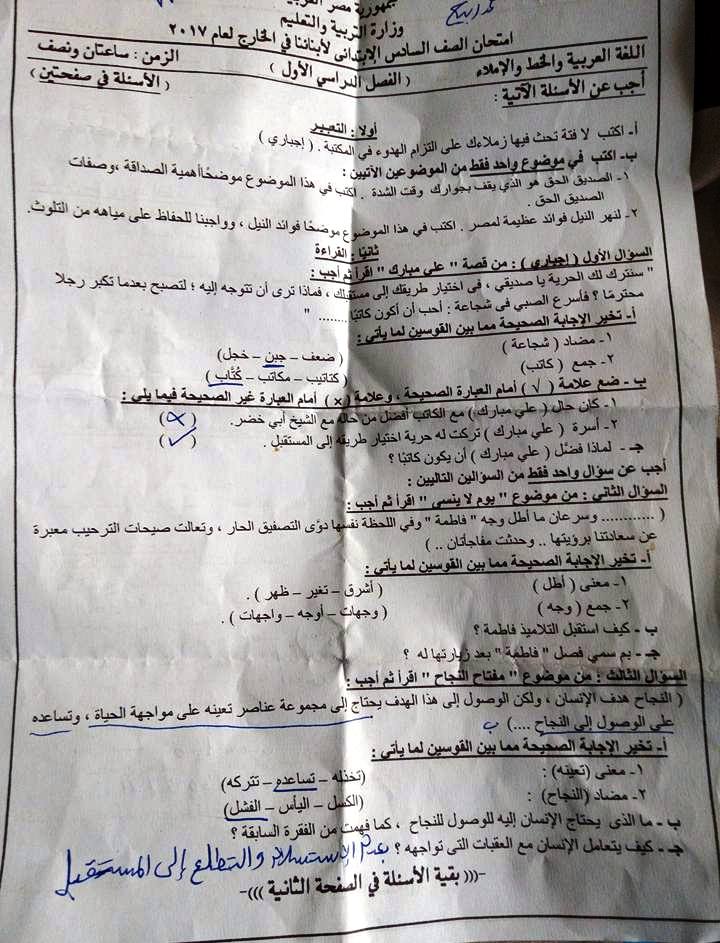 جمهورية مصر العربية
وزارة التربية والتعليم
امتحان الصف السادس الابتدائى لأبنائنا في الخارج لعام ٢٠١٧
اللغة العربية والخط والإملاء ( الفصل الدراسي الأول ) الزمن : ساعتان ونصف
أجب عن الأسئلة الآتية : ( الأسئلة في صفحتين )
أولا : التعبير
أ- اكتب لا فتة تحث فيها زملاءك على التزام الهدوء في المكتبة . ( إجباري )
ب- اكتب في موضوع واحد فقط من الموضوعين الآتيين :
١- الصديق الحق هو الذي يقف بجوارك وقت الشدة . اكتب في هذا الموضوع موضحًا أهمية الصداقة ، وصفات
الصديق الحق .
٢- لنهر النيل فوائد عظيمة لمصر . اكتب في هذا الموضوع موضحًا فوائد النيل ، وواجبنا للحفاظ على مياهه من التلوث.
ثانيًا : القراءة
السؤال الأول ( إجباري ) : من قصة " علي مبارك " اقرأ ثم أجب :
" سنترك لك الحرية يا صديقي ، فى اختيار طريقك إلى مستقبلك ، فماذا ترى أن تتوجه إليه ؛ لتصبح بعدما تكبر رجلا
محترمًا ؟ فأسرع الصبي فى شجاعة : أحب أن أكون كاتبًا ........ "
أ- تخير الإجابة الصحيحة مما بين القوسين لما يأتى :
١- مضاد ( شجاعة ) ( ضعف – جبن – خجل )
٢- جمع ( كاتب ) ( كتاتيب – مكاتب – كُتَّاب )
ب - ضع علامة ( √ ) أمام العبارة الصحيحة ، وعلامة ( × ) أمام العبارة غير الصحيحة فيما يلي :
١- كان حال ( علي مبارك ) مع الكاتب أفضل من حاله مع الشيخ أبي خضر. ( × )
٢- أسرة ( علي مبارك ) تركت له حرية اختيار طريقه إلى المستقبل . ( ✓ )
جـ - لماذا فضَّل ( علي مبارك ) أن يكون كاتبًا ؟
أجب عن سؤال واحد فقط من السؤالين التاليين :
السؤال الثاني : من موضوع " يوم لا ينسى " اقرأ ثم أجب :
( ............ وسرعان ما أطل وجه " فاطمة " وفي اللحظة نفسها دوَّى التصفيق الحار ، وتعالت صيحات الترحيب معبرة
عن سعادتنا برؤيتها .. وحدثت مفاجأتان .. )
أ- تخير الإجابة الصحيحة مما بين القوسين لما يأتى :
١- معنى ( أطل ) ( أشرق – تغير – ظهر ) .
٢- جمع ( وجه ) ( وجهات – أوجه – واجهات ) .
ب - كيف استقبل التلاميذ فاطمة ؟
جـ - بم سمي فصل " فاطمة " بعد زيارتها له ؟
السؤال الثالث : من موضوع " مفتاح النجاح " اقرأ ثم أجب :
( النجاح هدف الإنسان ، ولكن الوصول إلى هذا الهدف يحتاج إلى مجموعة عناصر تعينه على مواجهة الحياة ، وتساعده
على الوصول إلى النجاح ....) ب
أ- تخير الإجابة الصحيحة مما بين القوسين لما يأتى :
١- معنى (تعينه) : (تخذله – تساعده – تتركه)
٢- مضاد (النجاح) : (الكسل – اليأس – الفشل)
ب - ما الذى يحتاج الإنسان إليه للوصول للنجاح ، كما فهمت من الفقرة السابقة ؟
جـ - كيف يتعامل الإنسان مع العقبات التى تواجهه ؟ بعدم الاستسلام والتطلع إلى المستقبل
-((( بقية الأسئلة في الصفحة الثانية )))-